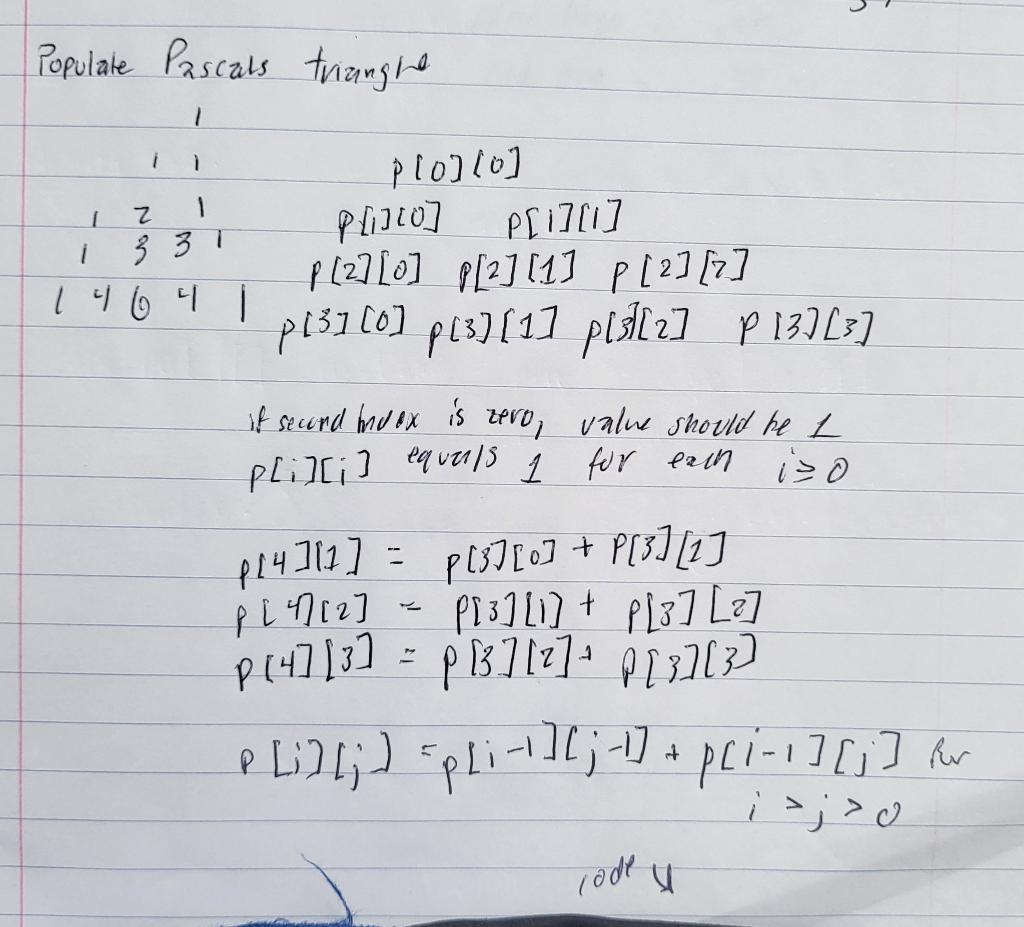 Populate Pascals triangle
1
1 1
1 2 1
1 3 3 1
1 4 6 4 1
p[0][0]
p[1][0] p[1][1]
p[2][0] p[2][1] p[2][2]
p[3][0] p[3][1] p[3][2] p[3][3]
if second index is zero, value should be 1
p[i][i] equals 1 for each i ≥ 0
p[4][1] = p[3][0] + p[3][1]
p[4][2] = p[3][1] + p[3][2]
p[4][3] = p[3][2] + p[3][3]
p[i][j] = p[i-1][j-1] + p[i-1][j] for
i > j > 0
code